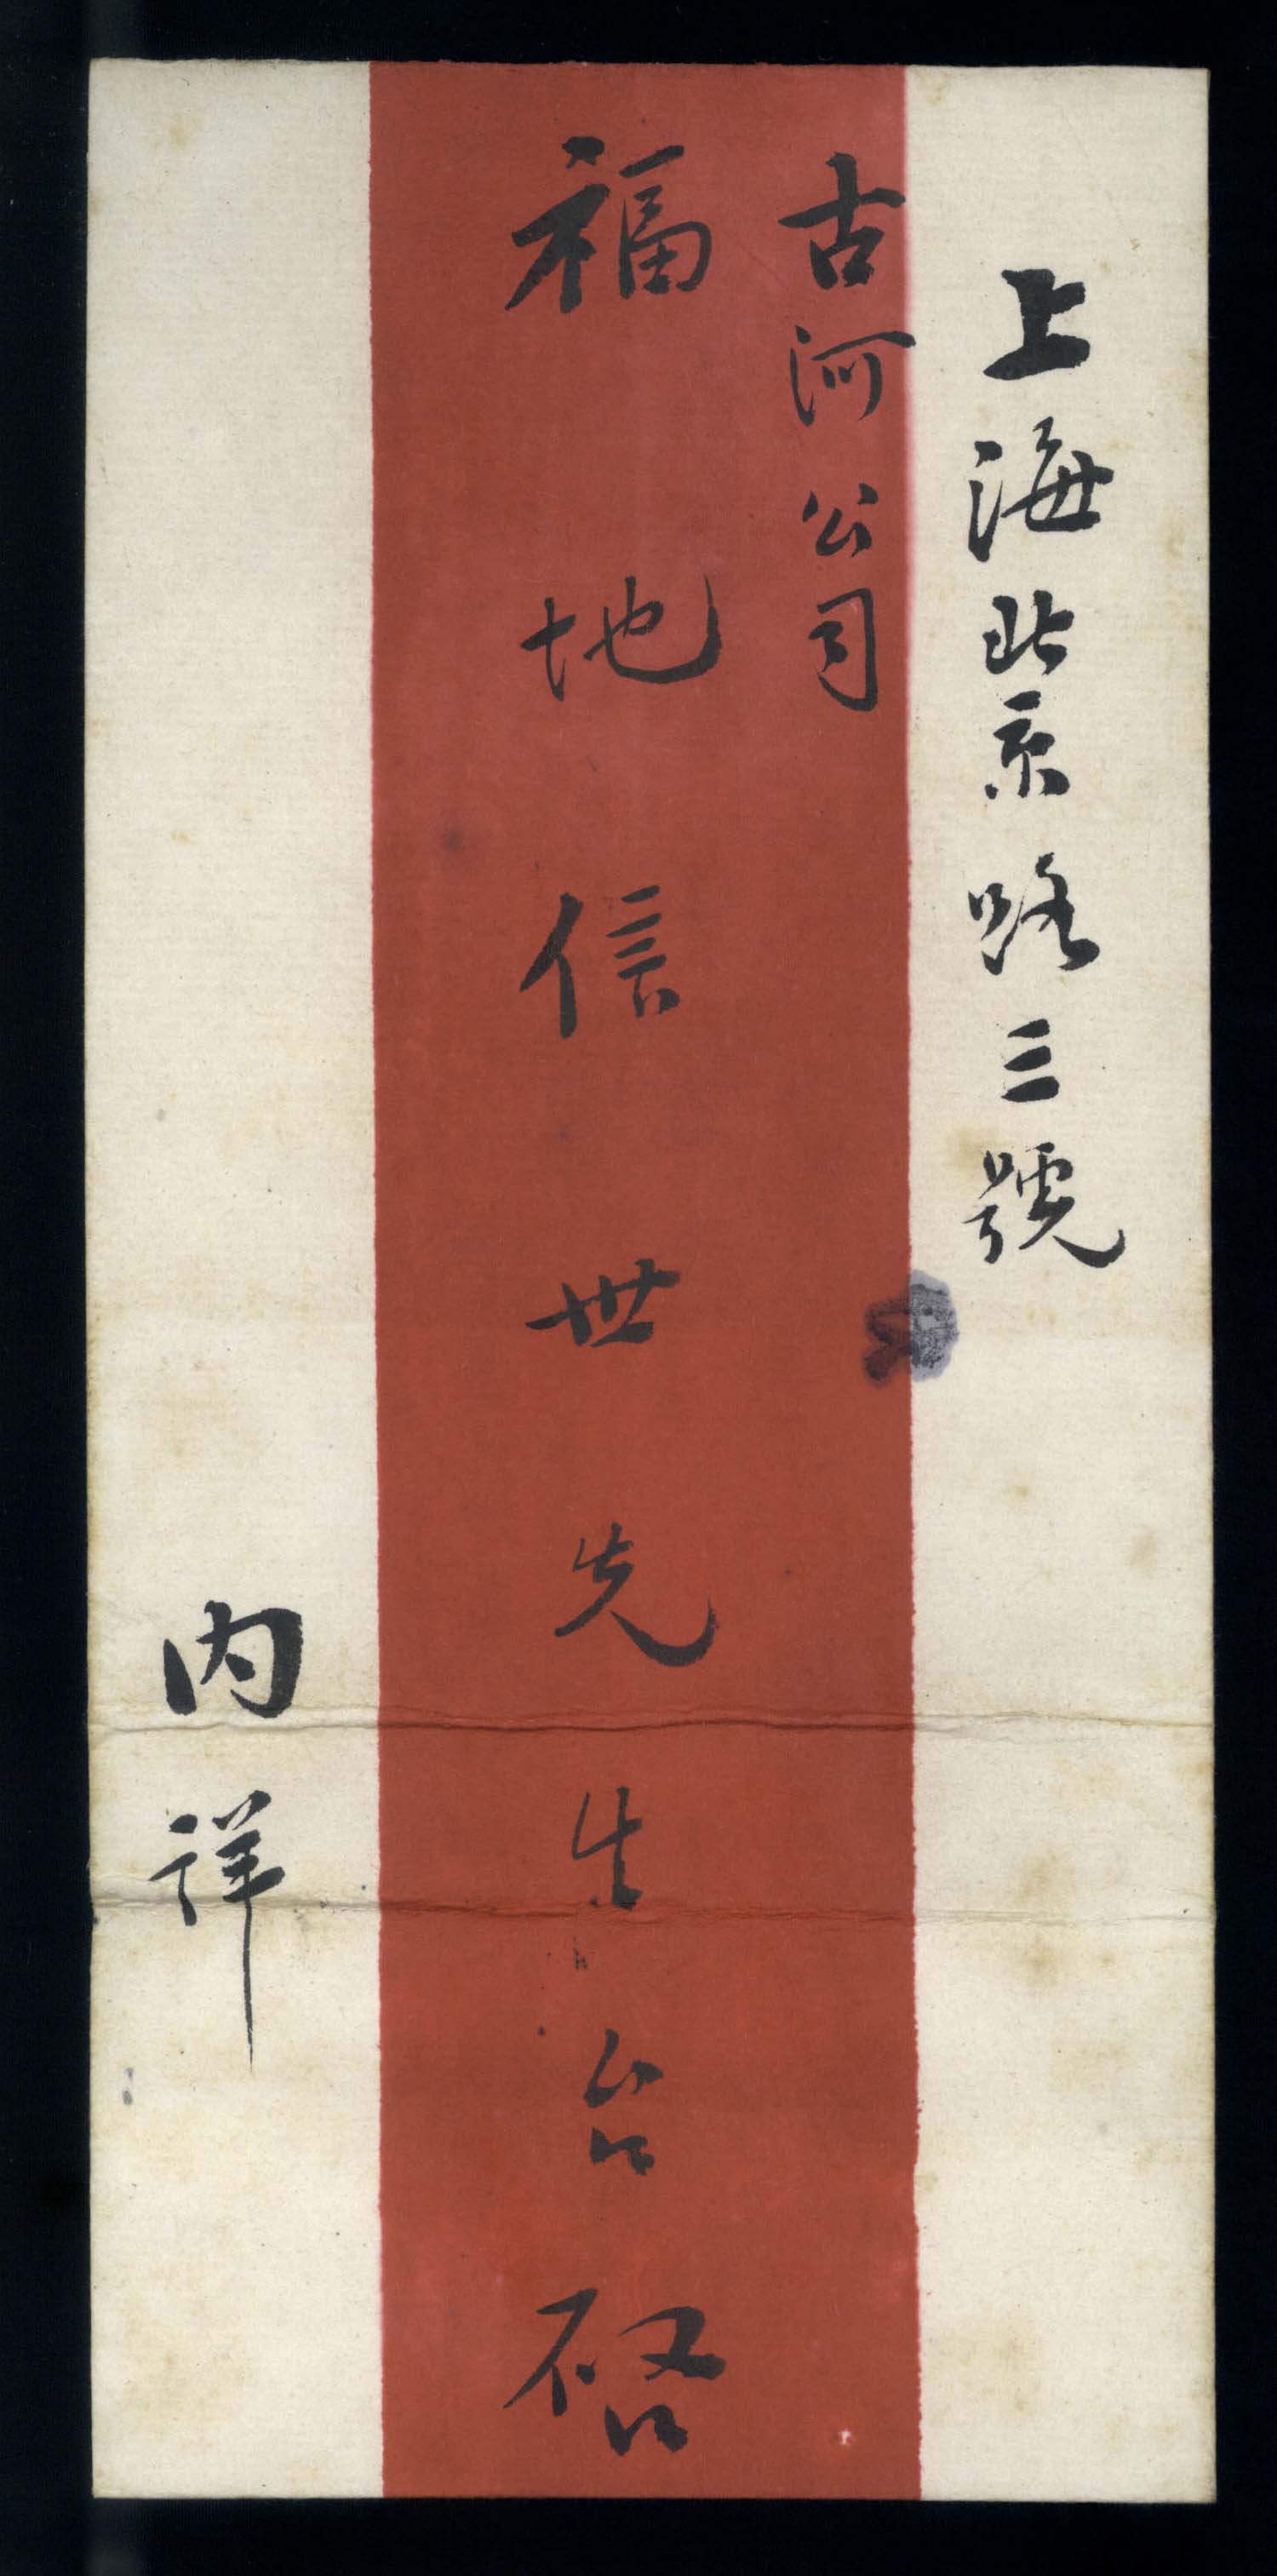 上海北京路三號
古河公司
福地信世先生台啓
内詳